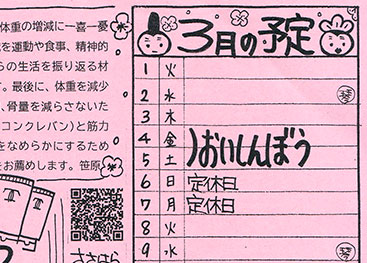 体重の増減に一喜一憂
を運動や食事、精神的
らの生活を振り返る材
す。最後に、体重を減少
、骨量を減らさないた
コンクレバン)と筋力
をなめらかにするため
をお薦めします。笹原
ささはら
3月の予定
1 火
2 水 琴
3 木
4 金 おいしんぼう
5 土
6 日 定休日
7 月 定休日
8 火
9 水 琴